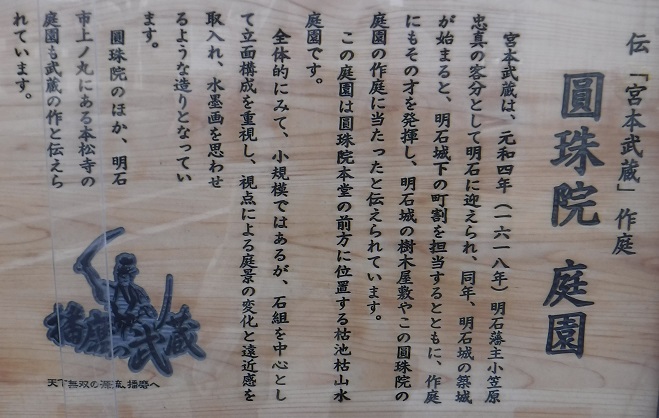 伝「宮本武蔵」作庭
圓珠院 庭園
宮本武蔵は、元和四年（一六一八年）明石藩主小笠原
忠真の客分として明石に迎えられ、同年、明石城の築城
が始まると、明石城下の町割を担当するとともに、作庭
にもその才を発揮し、明石城の樹木屋敷やこの圓珠院の
庭園の作庭に当たったと伝えられています。
この庭園は圓珠院本堂の前方に位置する枯池枯山水
庭園です。
全体的にみて、小規模ではあるが、石組を中心とし
て立面構成を重視し、視点による庭景の変化と遠近感を
取入れ、水墨画を思わせ
るような造りとなってい
ます。
圓珠院のほか、明石
市上ノ丸にある本松寺の
庭園も武蔵の作と伝えら
れています。
播磨の武蔵
天下無双の源流、播磨へ